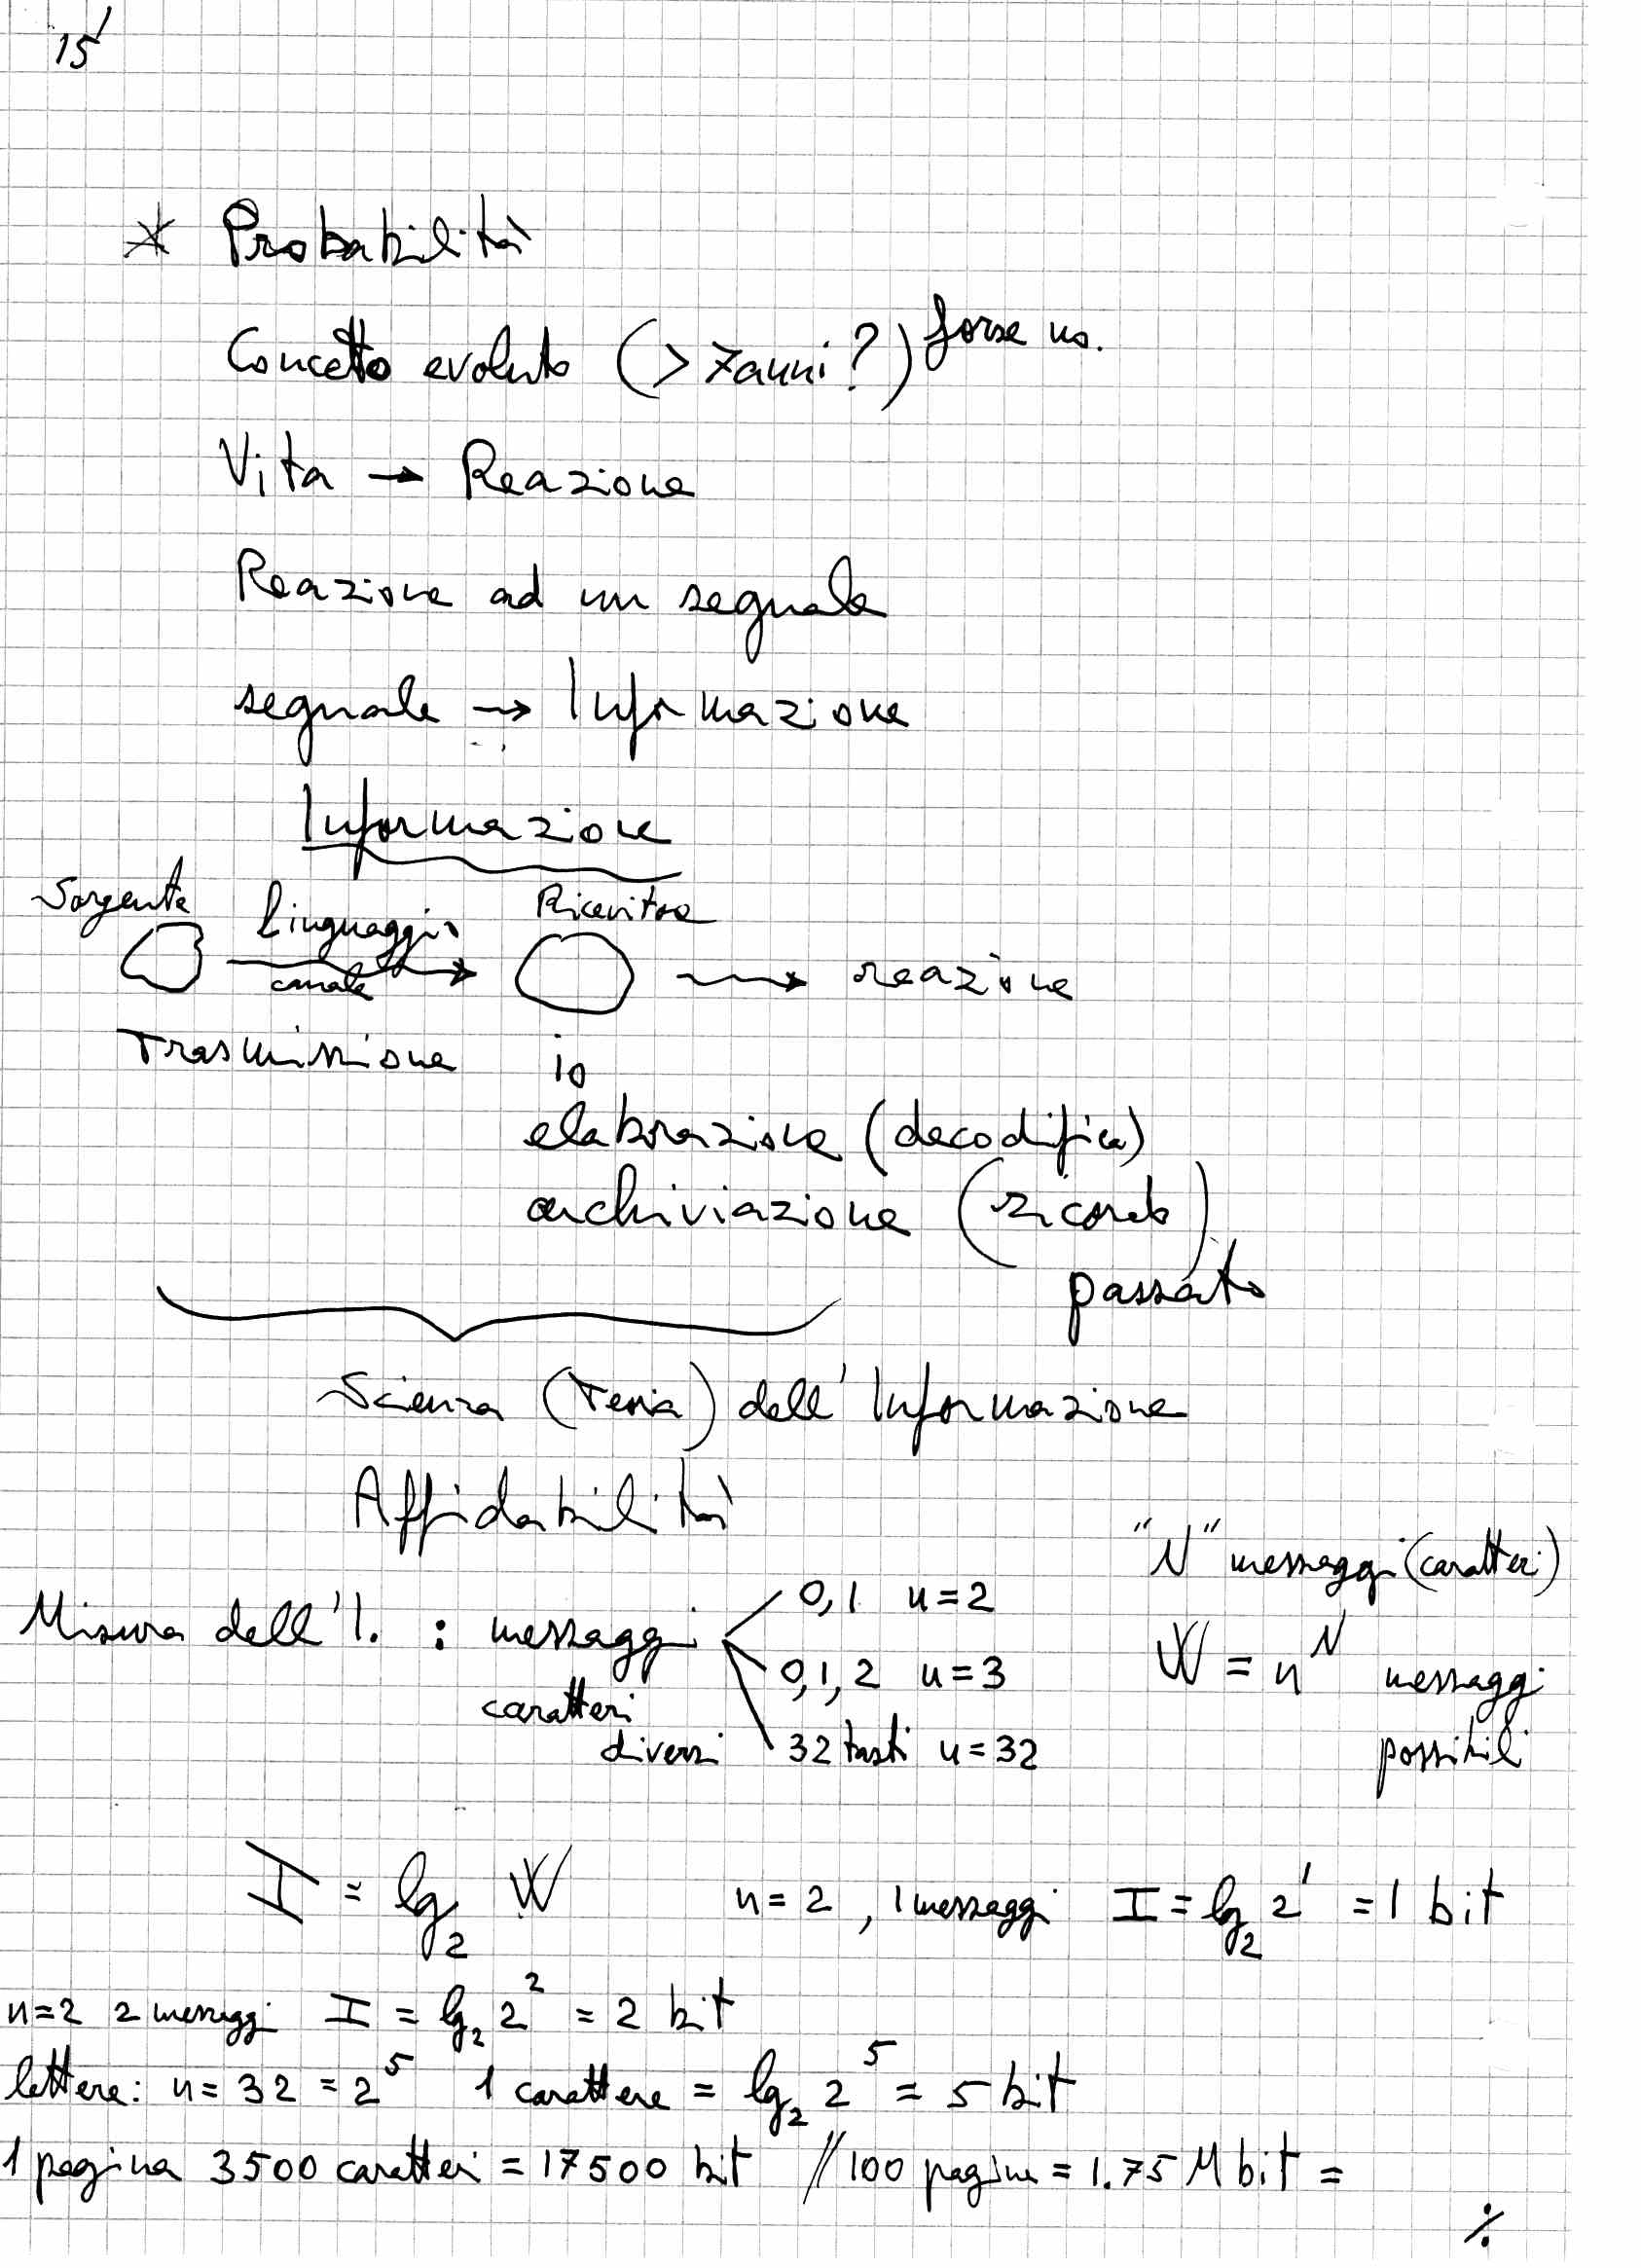 15'
* Probabilità
Concetto evoluto (> 7 anni?) forse no.
Vita → Reazione
Reazione ad un segnale
segnale → Informazione
Informazione
Sorgente linguaggio Ricevitore
canale → reazione
Trasmissione io
elaborazione (decodifica)
archiviazione (ricordo)
passato
Scienza (Teoria) dell'Informazione
Affidabilità
"N" messaggi (caratteri)
Misura dell'I. : messaggi 0,1 n=2
0,1,2 n=3 W = n^N messaggi
caratteri
diversi 32 tasti n=32 possibili
I = lg₂ W n=2, 1 messaggi I = lg₂ 2¹ = 1 bit
n=2 2 messaggi I = lg₂ 2² = 2 bit
lettere: n=32=2⁵ 1 carattere = lg₂ 2⁵ = 5 bit
1 pagina 3500 caratteri = 17500 bit // 100 pagine = 1.75 Mbit =
./.